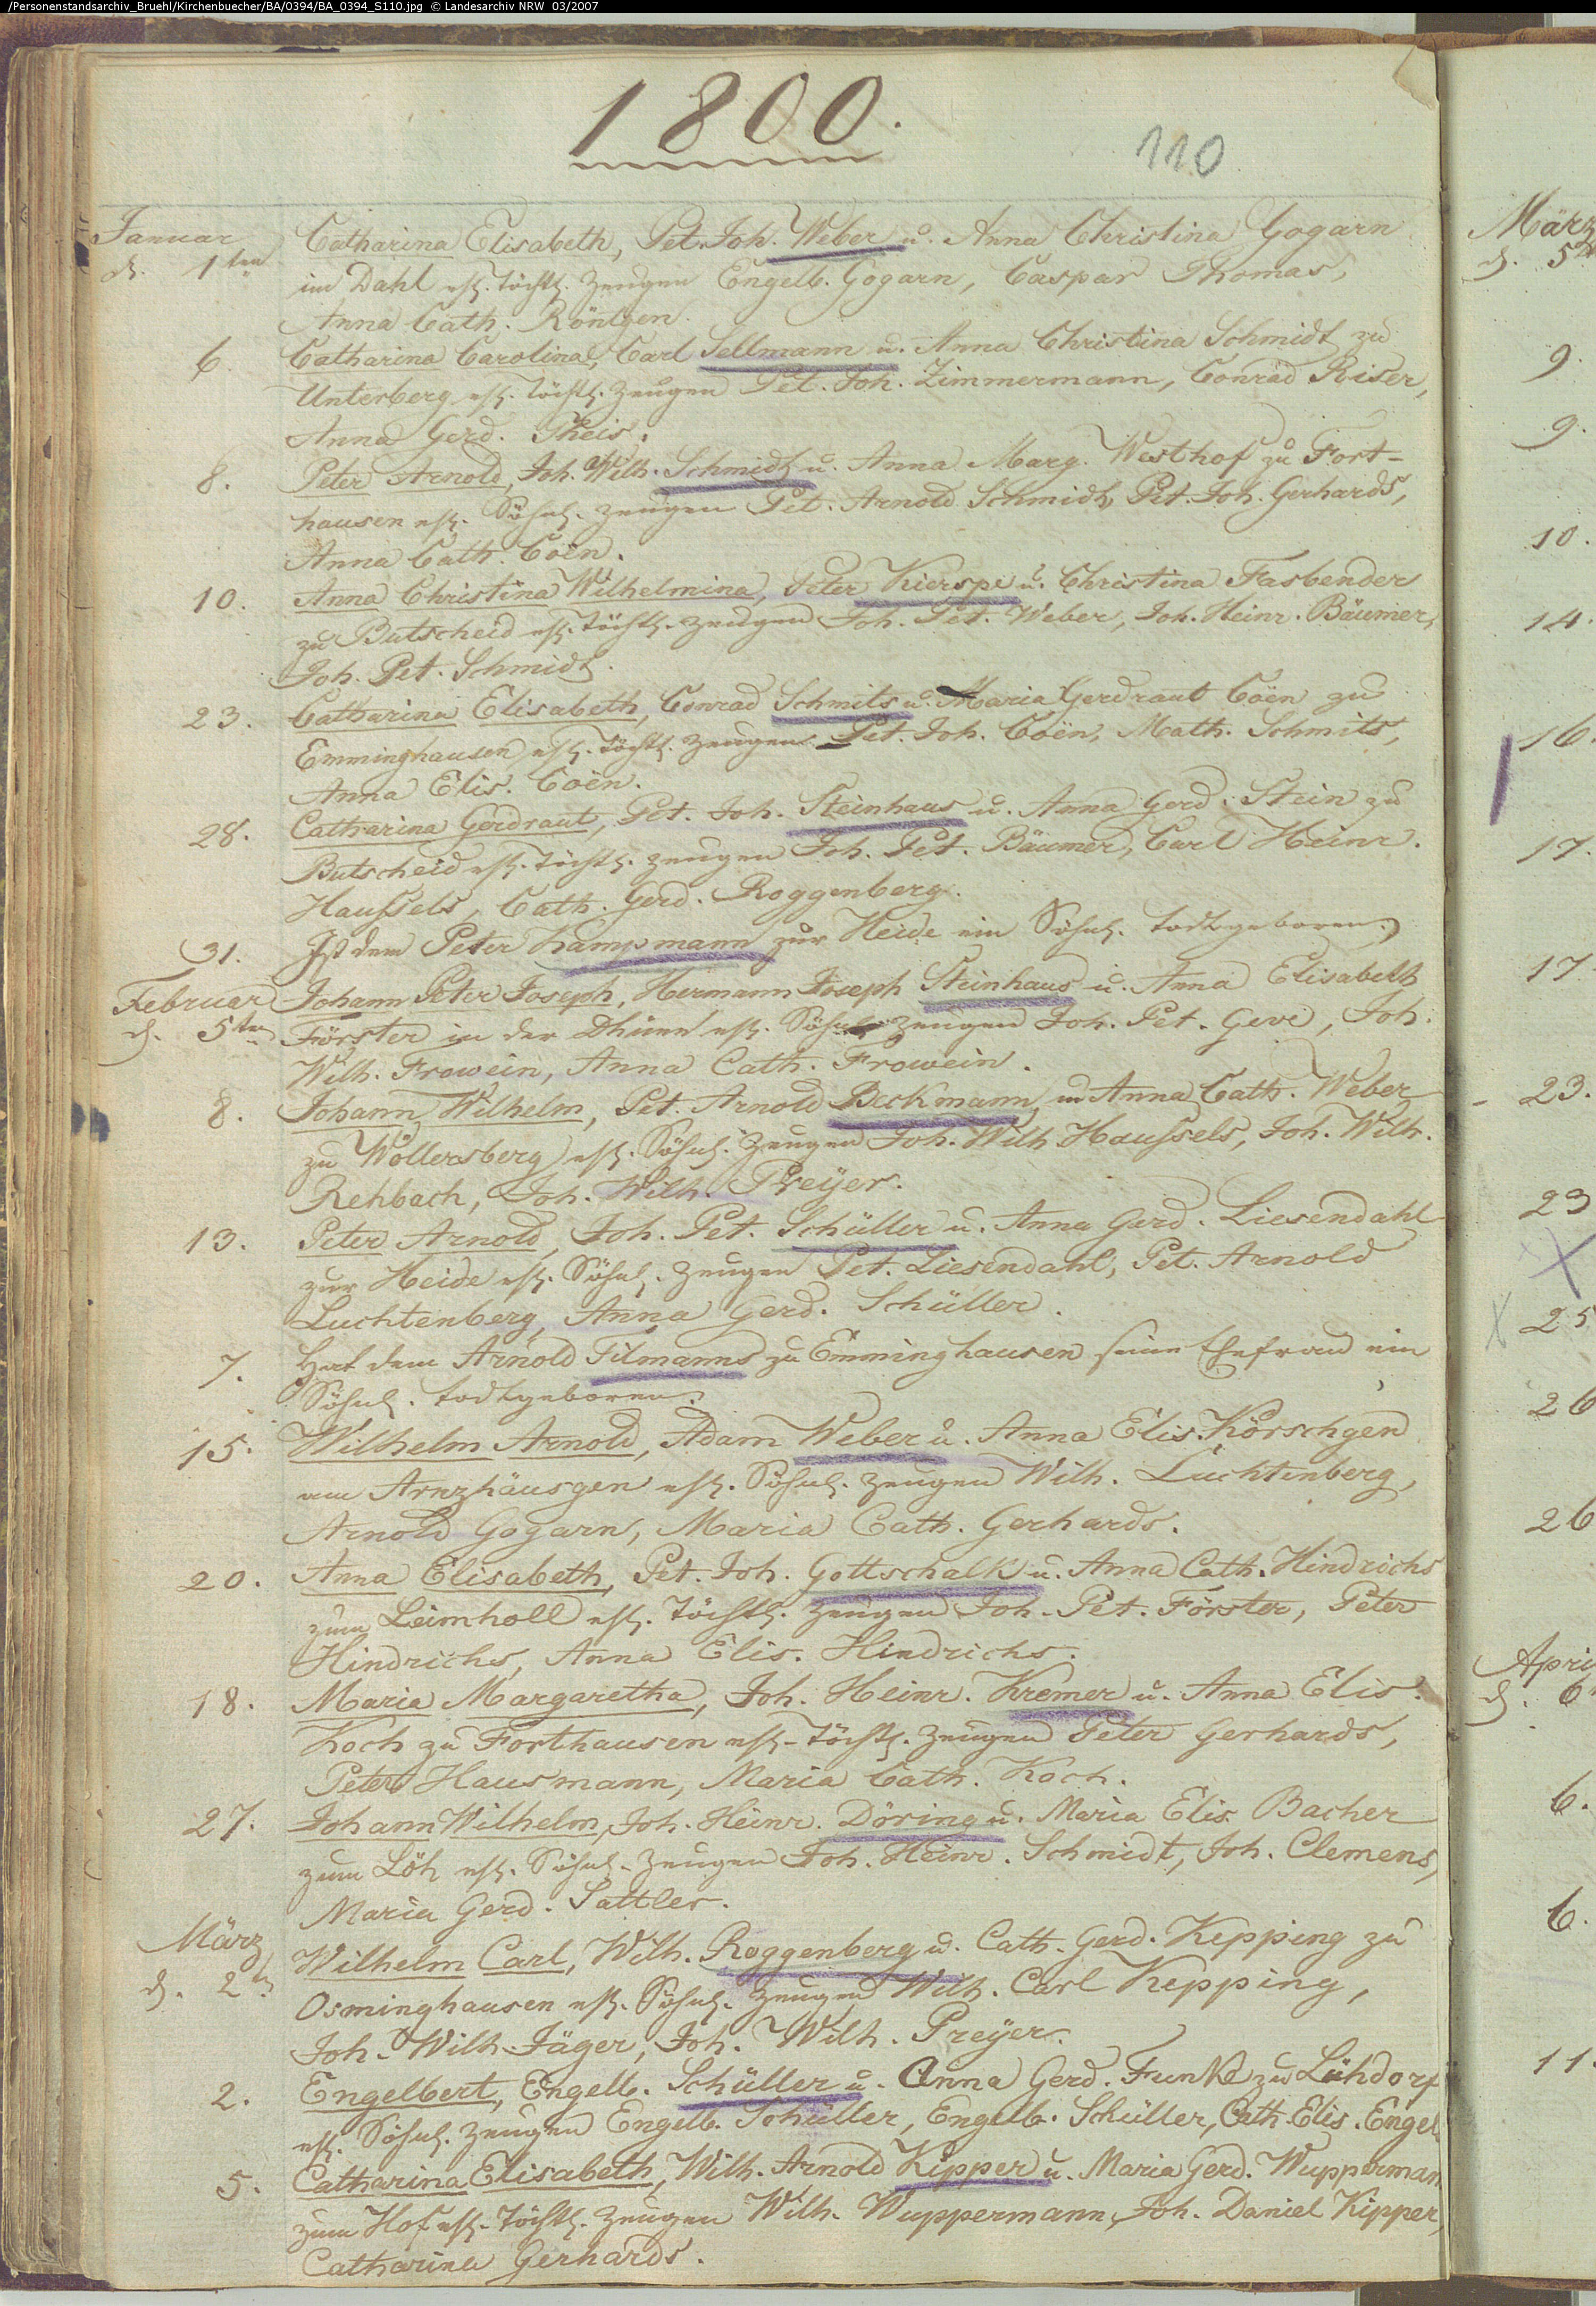 /Personenstandsarchiv_Bruehl/Kirchenbuecher/BA/0394/BA_0394_S110.jpg © Landesarchiv NRW 03/2007
1800.
110
Januar
d. 1ten
Catharina Elisabeth, Pet. Joh. Weber u. Anna Christina Gogarn
im Dahl ehl. Töchtl. Zeugen Engelb. Gogarn, Caspar Thomas,
Anna Cath. Röntgen.
6. Catharina Carolina, Carl Sellmann u. Anna Christina Schmidt zu
Unterberg ehl. Töchtl. Zeugen Pet. Joh. Zimmermann, Conrad Riser,
Anna Gerd. Theis.
8. Peter Arnold, Joh. Wilh. Schmidt u. Anna Marg. Westhof zu Fort-
hausen ehl. Söhnl. Zeugen Pet. Arnold Schmidt, Pet. Joh. Gerhards,
Anna Cath. Coën.
10. Anna Christina Wilhelmina, Peter Kierspe u. Christina Fasbender
zu Butscheid ehl. Töchtl. Zeugen Joh. Pet. Weber, Joh. Heinr. Bäumer,
Joh. Pet. Schmidt.
23. Catharina Elisabeth, Conrad Schmits u. Maria Gerdraut Coën zu
Emminghausen ehl. Töchtl. Zeugen Pet. Joh. Coën, Math. Schmits,
Anna Elis. Coën.
28. Catharina Gerdraut, Pet. Joh. Steinhaus u. Anna Gerd. Stein zu
Butscheid ehl. Töchtl. Zeugen Joh. Pet. Bäumer, Carl Heinr.
Haussels, Cath. Gerd. Roggenberg.
31. Ist dem Peter Kampmann zur Heide ein Söhnl. todtgeboren.
Februar
d. 5ten
Johann Peter Joseph, Hermann Joseph Steinhaus u. Anna Elisabeth
Förster in der Dhünn ehl. Söhnl. Zeugen Joh. Pet. Geve, Joh.
Wilh. Frowein, Anna Cath. Frowein.
8. Johann Wilhelm, Pet. Arnold Beckmann u. Anna Cath. Weber
zu Wöllersberg ehl. Söhnl. Zeugen Joh. Wilh. Haussels, Joh. Wilh.
Rehbach, Joh. Wilh. Preÿer.
13. Peter Arnold, Joh. Pet. Schüller u. Anna Gerd. Liesendahl
zur Heide ehl. Söhnl. Zeugen Pet. Liesendahl, Pet. Arnold
Luchtenberg, Anna Gerd. Schüller.
7. Hat dem Arnold Tilmanns zu Emminghausen seine Ehefrau ein
Söhnl. todtgeboren.
15. Wilhelm Arnold, Adam Weber u. Anna Elis. Körschgen
am Arnzhäusgen ehl. Söhnl. Zeugen Wilh. Luchtenberg,
Arnold Gogarn, Maria Cath. Gerhards.
20. Anna Elisabeth, Pet. Joh. Gottschalk u. Anna Cath. Hindrichs
zum Leimholl ehl. Töchtl. Zeugen Joh. Pet. Förster, Peter
Hindrichs, Anna Elis. Hindrichs.
18. Maria Margaretha, Joh. Heinr. Kremer u. Anna Elis.
Koch zu Forthausen ehl. Töchtl. Zeugen Peter Gerhards,
Peter Hausmann, Maria Cath. Koch.
27. Johann Wilhelm, Joh. Heinr. Döring u. Maria Elis. Bacher
zum Löh ehl. Söhnl. Zeugen Joh. Heinr. Schmidt, Joh. Clemens,
Maria Gerd. Sattler.
März
d. 2t
Wilhelm Carl, Wilh. Roggenberg u. Cath. Gerd. Kepping zu
Osminghausen ehl. Söhnl. Zeugen Wilh. Carl Kepping,
Joh. Wilh. Jäger, Joh. Wilh. Preÿer.
2. Engelbert, Engelb. Schüller u. Anna Gerd. Funke zu Lühdorf
ehl. Söhnl. Zeugen Engelb. Schüller, Engelb. Schüller, Cath. Elis. Engel
5. Catharina Elisabeth, Wilh. Arnold Kipper u. Maria Gerd. Wupperman
zum Hof ehl. Töchtl. Zeugen Wilh. Wuppermann, Joh. Daniel Kipper,
Catharina Gerhards.
März
d. 5t
9.
9.
10.
14.
16.
17.
17
23.
23
25
26
26
Apri
d. 6
6.
6.
11